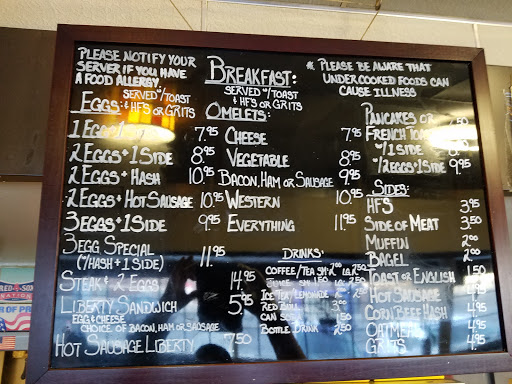 PLEASE NOTIFY YOUR
SERVER IF YOU HAVE
A FOOD ALLERGY
BREAKFAST:
* PLEASE BE AWARE THAT
UNDERCOOKED FOODS CAN
CAUSE ILLNESS
EGGS: SERVED W/TOAST
& HFS OR GRITS
1 EGG
2 EGGS + 1 SIDE 8.95
2 EGGS + HASH 10.95
2 EGGS + HOT SAUSAGE 10.95
3 EGGS + 1 SIDE 9.95
3 EGG SPECIAL
(W/HASH + 1 SIDE) 11.95
STEAK + 2 EGGS 14.95
LIBERTY SANDWICH 5.95
EGG & CHEESE
CHOICE OF BACON, HAM OR SAUSAGE
HOT SAUSAGE LIBERTY 7.50
SERVED W/TOAST
& HFS OR GRITS
OMELETS:
CHEESE 7.95
VEGETABLE 8.95
BACON, HAM OR SAUSAGE 9.95
WESTERN 10.95
EVERYTHING 11.95
DRINKS:
COFFEE/TEA SM. 2.00 LG. 2.50
JUICE SM. 1.50 LG.
ICE TEA/LEMONADE
RED BULL
CAN SODA
BOTTLE DRINK 2.50
PANCAKES OR 7.50
FRENCH TOAST
W/1 SIDE
W/2 EGGS + 1 SIDE 9.95
SIDES:
HFS 3.95
SIDE OF MEAT 3.50
MUFFIN 2.00
BAGEL 2.00
TOAST OR ENGLISH 1.50
HOT SAUSAGE 4.95
CORN BEEF HASH 4.95
OATMEAL 4.95
GRITS 4.95
RED SOX
NATION